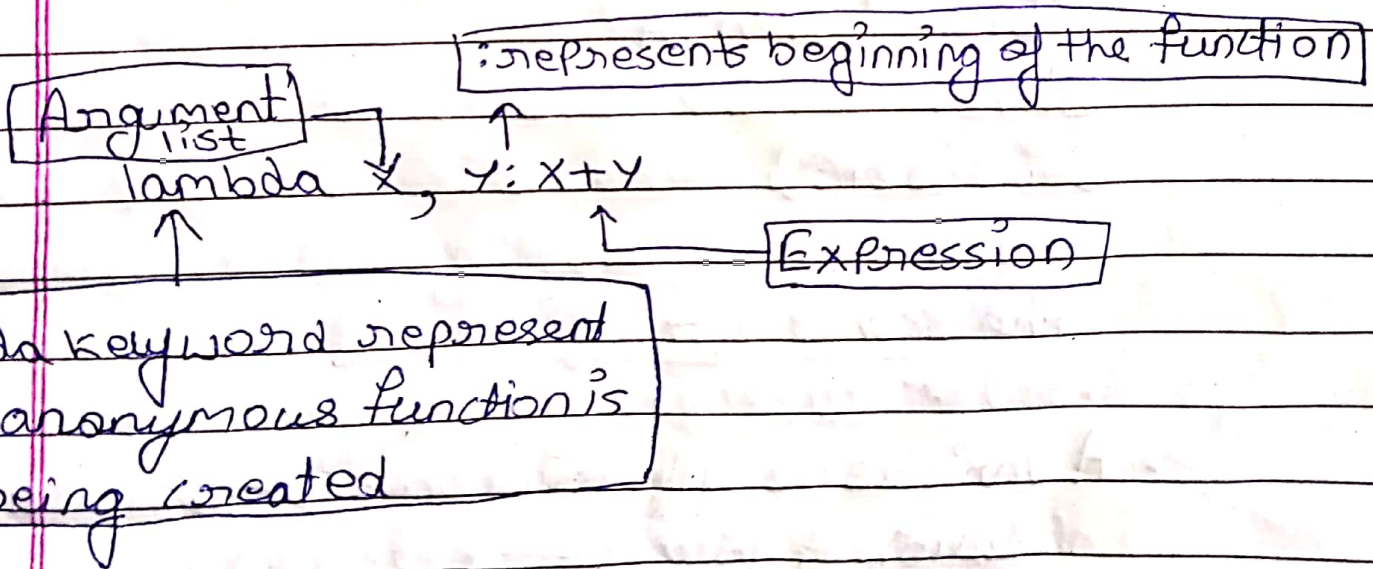 : represents beginning of the function
Argument
list
lambda x, y: x+y
Expression
keyword represent
anonymous function is
being created